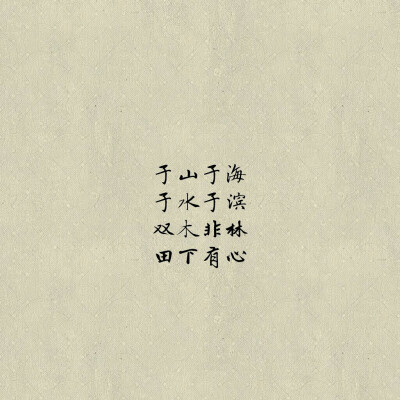 于山于海
于水于滨
双木非林
田下有心